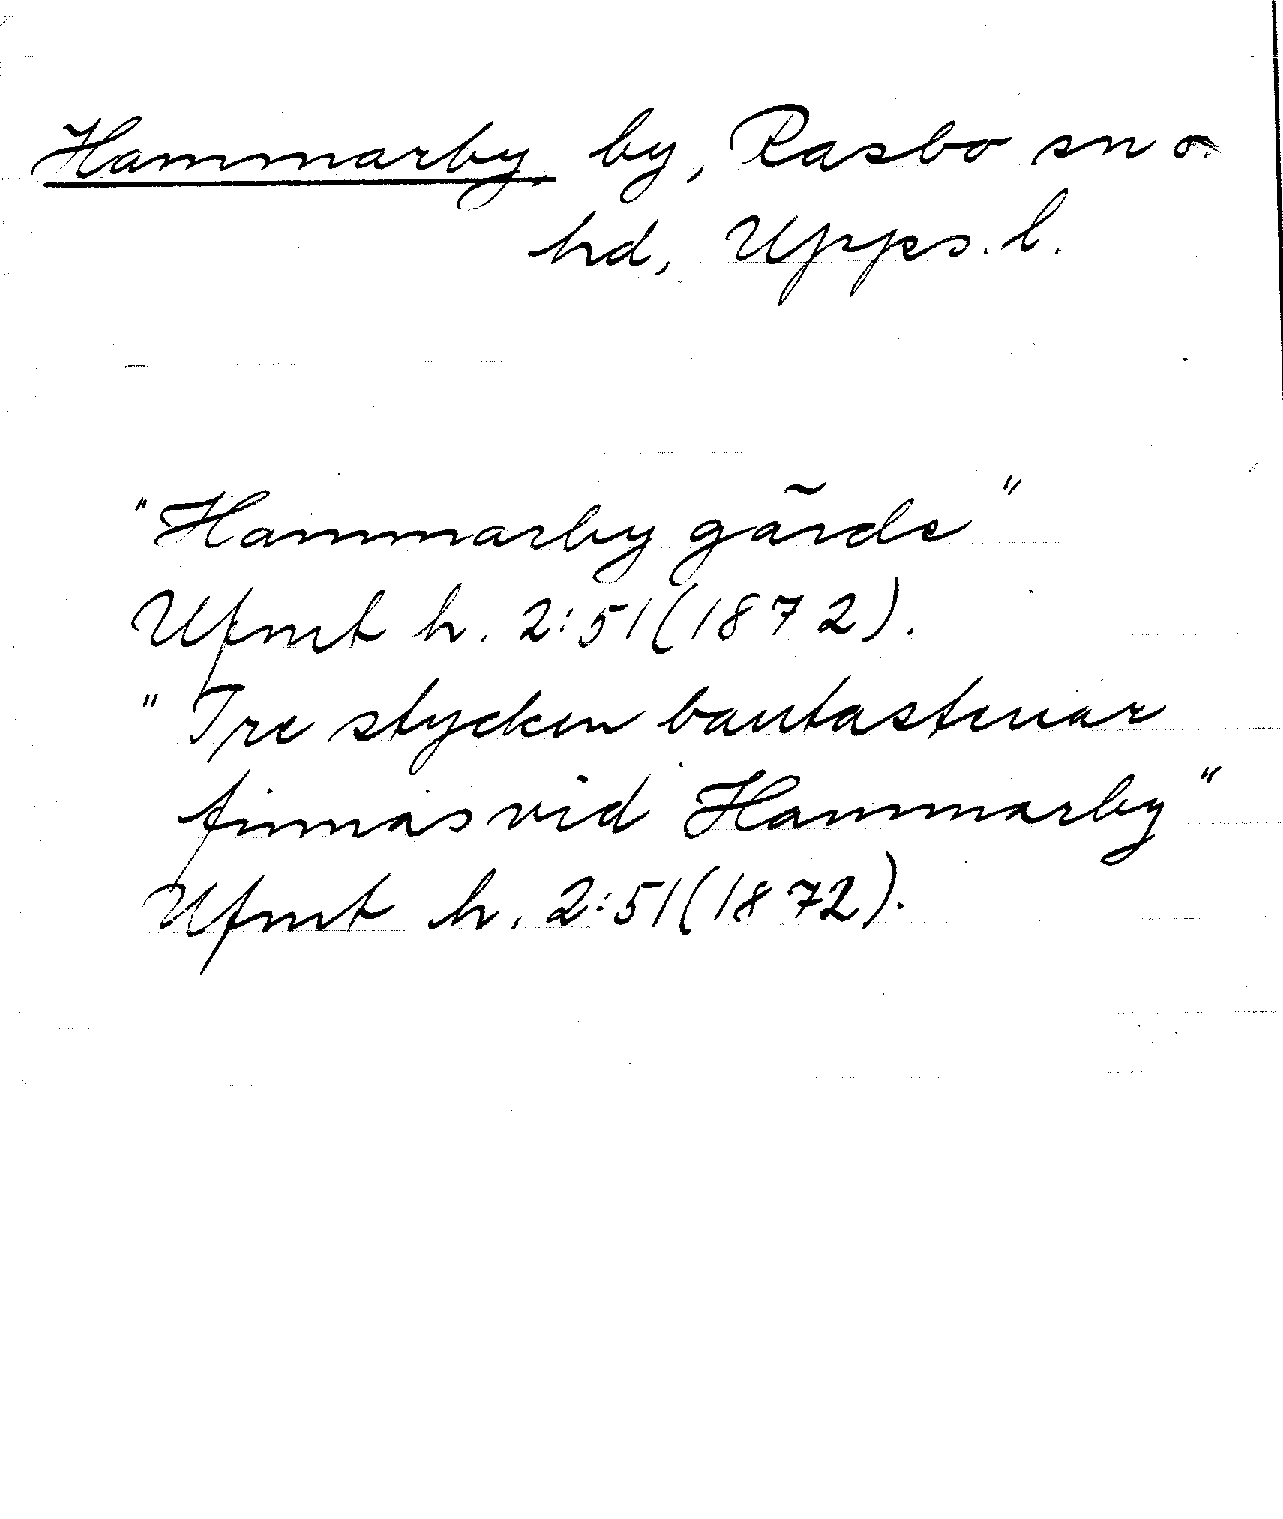 Hammarby by, Rasbo sn o.
hd, Upps. l.
"Hammarby gärde"
Ufmt h. 2:51(1872).
"Tre stycken bautastenar
finnas vid Hammarby"
Ufmt h. 2:51(1872).